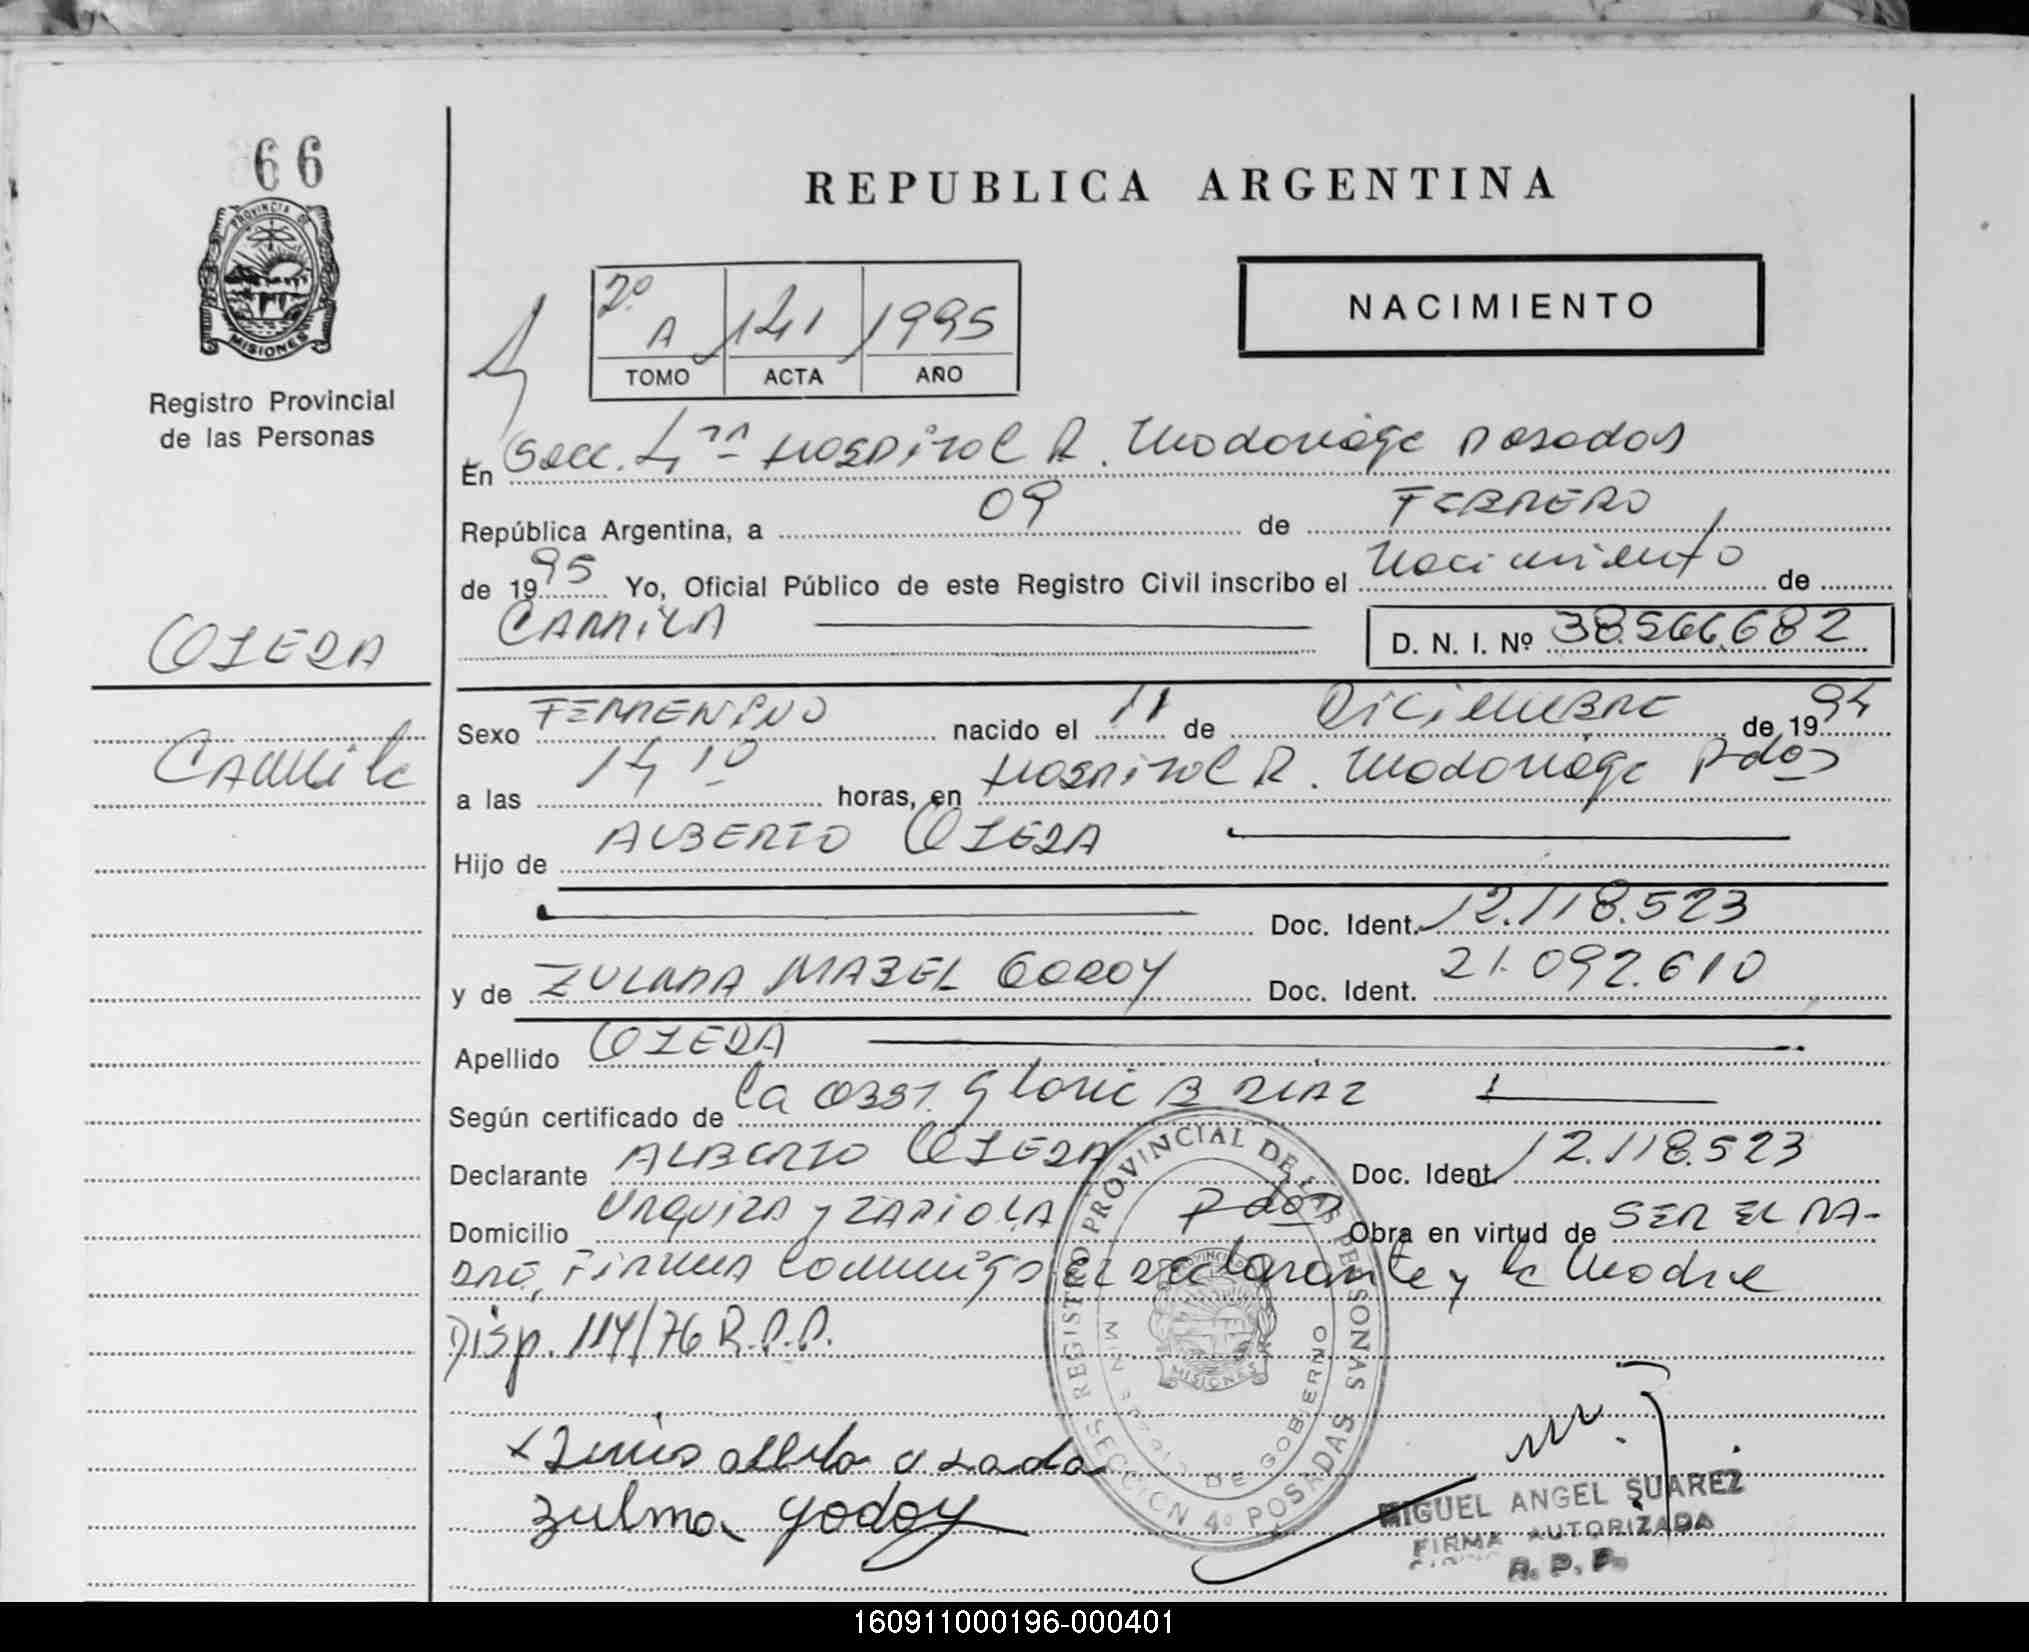 66
PROVINCIA DE
MISIONES
Registro Provincial
de las Personas
REPUBLICA ARGENTINA
NACIMIENTO
2º A 141 1995
TOMO ACTA AÑO
En Secc. 4ta Hospital R. Madariaga Posadas
República Argentina, a 09 de FEBRERO
de 1995 Yo, Oficial Público de este Registro Civil inscribo el Nacimiento de
CAMILA D. N. I. Nº 38.566.682
OJEDA
Camila
Sexo FEMENINO nacido el 11 de DICIEMBRE de 1994
a las 14,10 horas, en Hospital R. Madariaga Pdas
Hijo de ALBERTO OJEDA
Doc. Ident. 12.118.523
y de ZULMA MABEL GODOY Doc. Ident. 21.092.610
Apellido OJEDA
Según certificado de la OBST. Gloria B DIAZ
Declarante ALBERTO OJEDA Doc. Ident. 12.118.523
Domicilio URQUIZA y ZAPIOLA Pdas Obra en virtud de SER EL PA-
DRE, FIRMA conmigo el declarante y la Madre
Disp. 114/76 R.P.P.
REGISTRO PROVINCIAL DE LAS PERSONAS
MIN DE GOBIERNO
SECCION 4º POSADAS
zulma godoy
MIGUEL ANGEL SUAREZ
FIRMA AUTORIZADA
R. P. P.
160911000196-000401